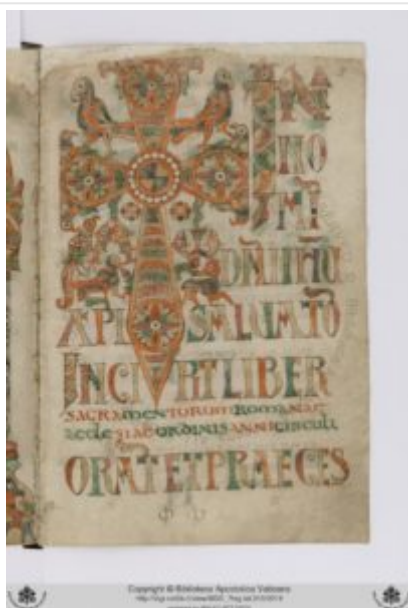 IN
NO
MI
DNI IHU
XPI SALUATO
INCIPIT LIBER
SACRAMENTORUM ROMANAE
aeclesiae ORDINIS ANNI CIRCULI
ORAT ET PRAECES
Copyright © Biblioteca Apostolica Vaticana